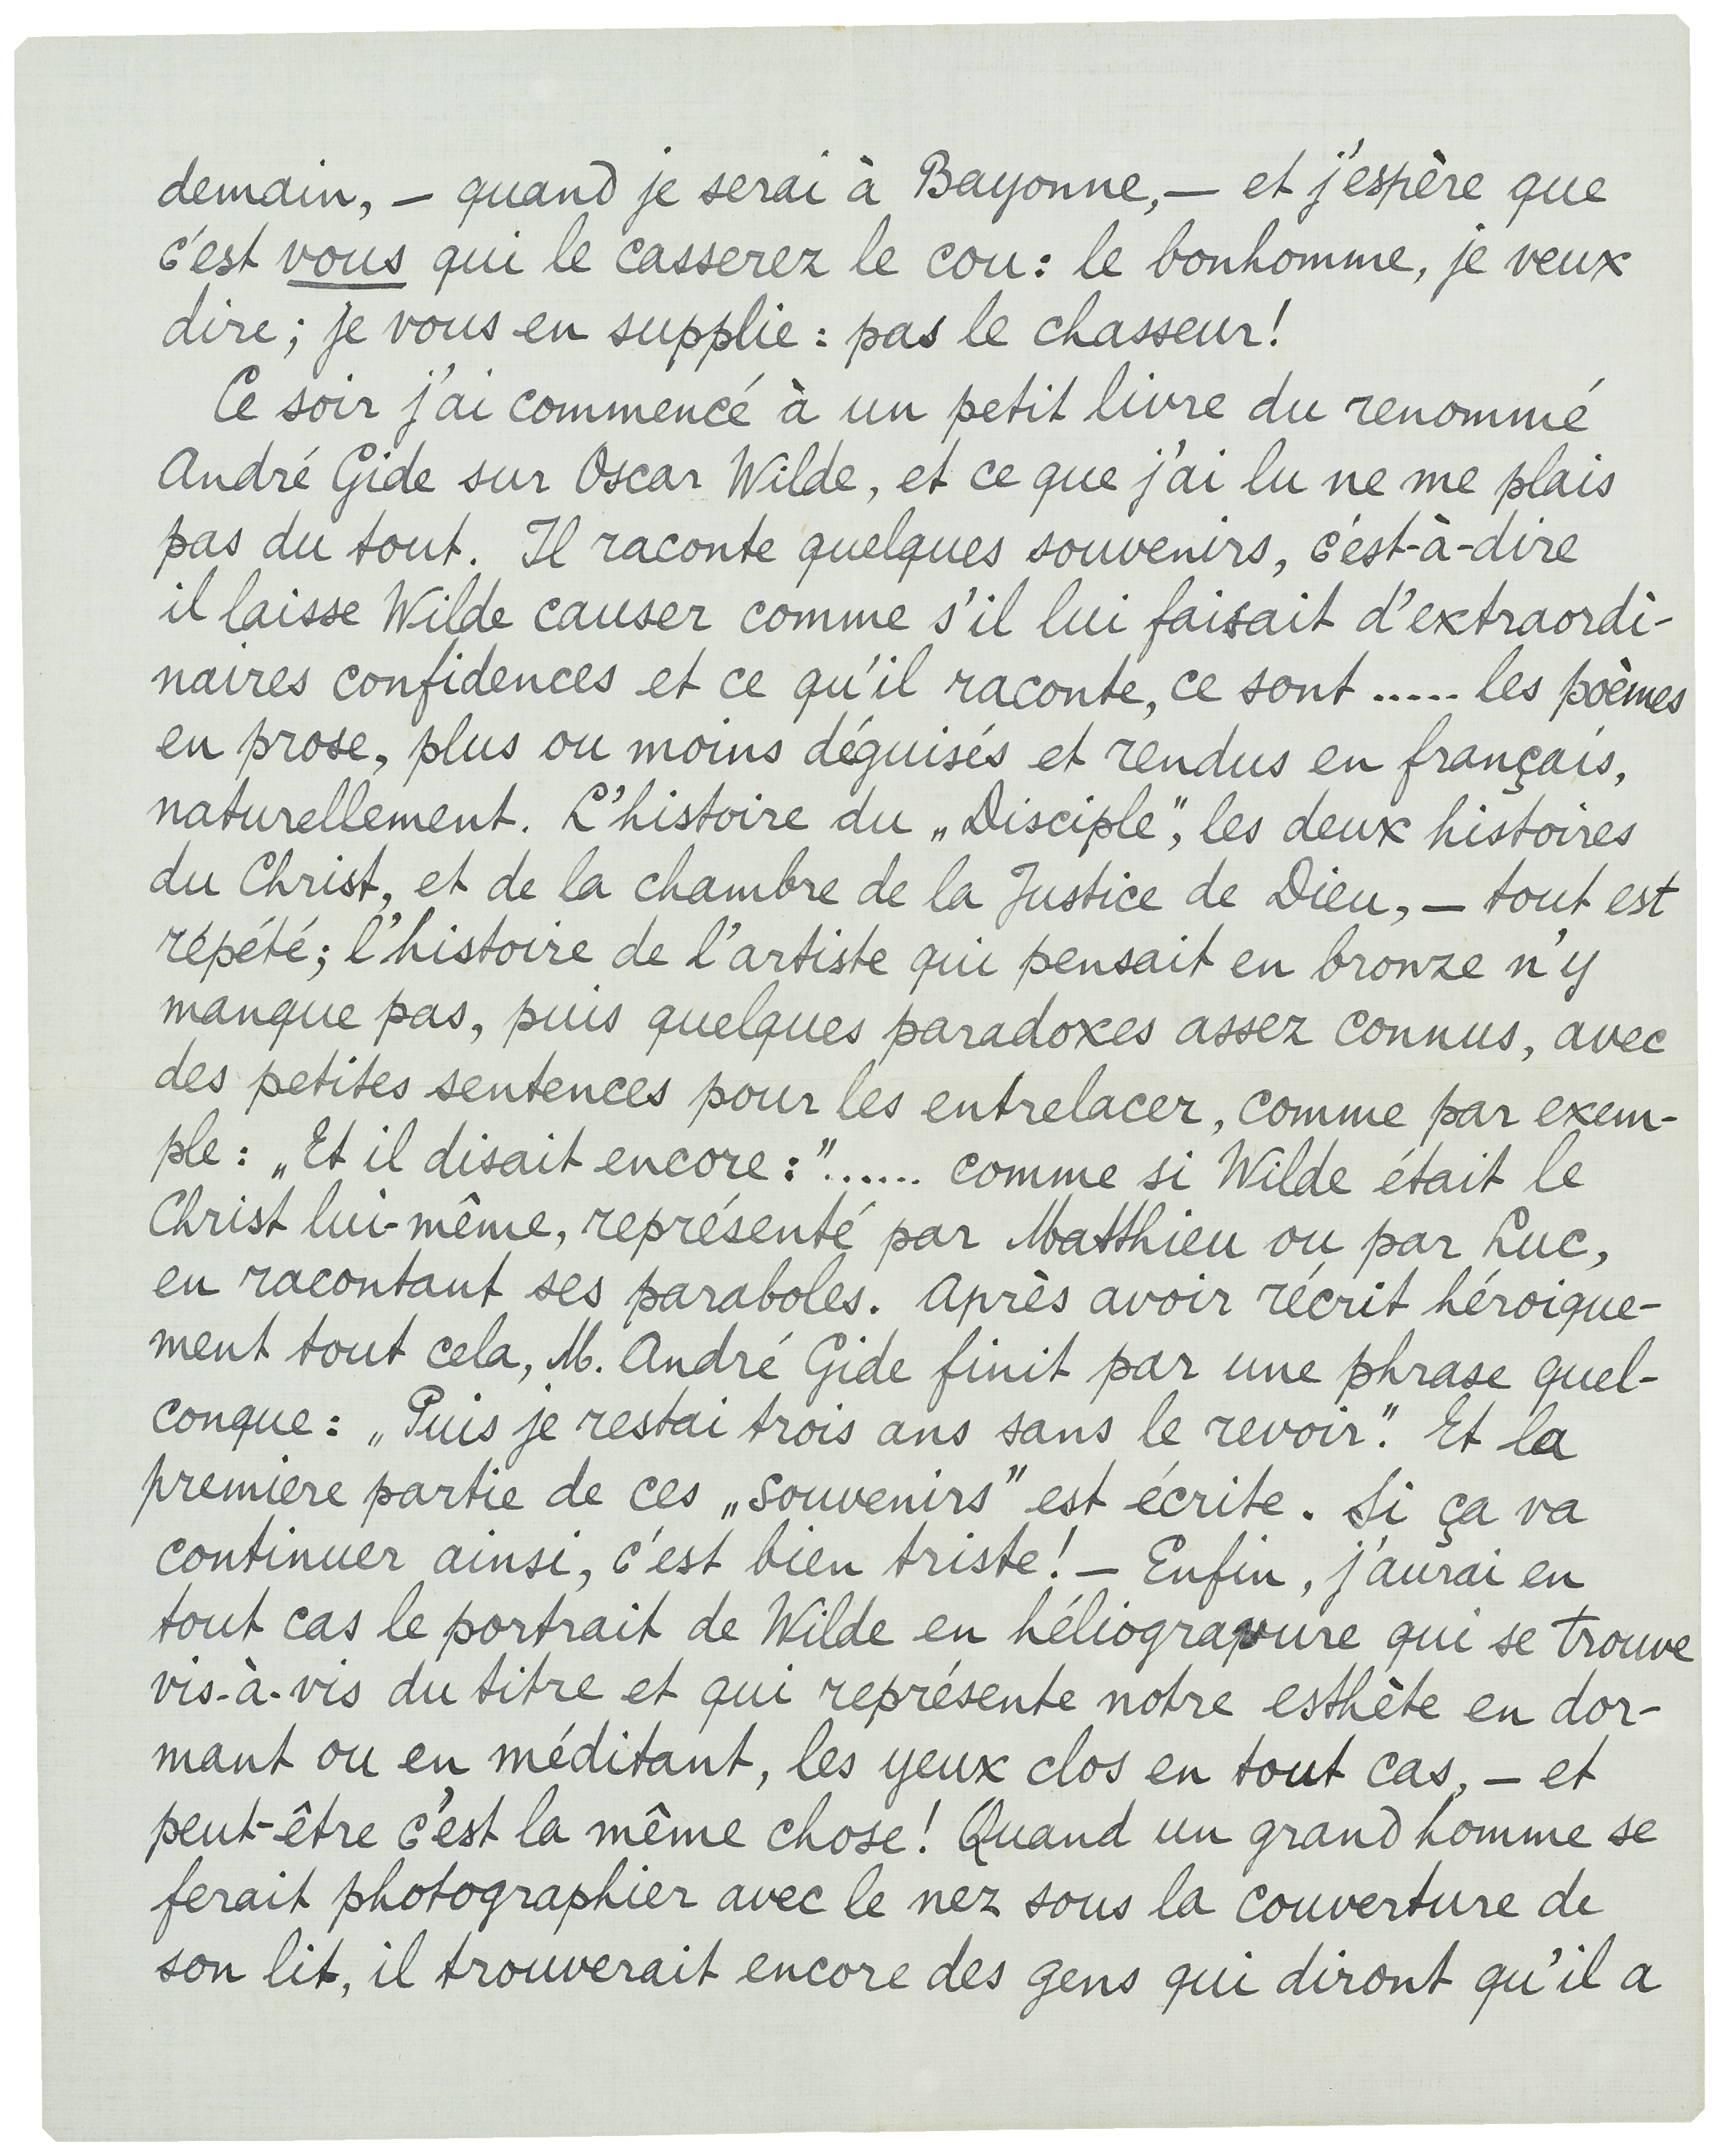 demain, — quand je serai à Bayonne, — et j'espère que
c'est vous qui le casserez le cou: le bonhomme, je veux
dire; je vous en supplie: pas le chasseur!
Ce soir j'ai commencé à un petit livre du renommé
André Gide sur Oscar Wilde, et ce que j'ai lu ne me plais
pas du tout. Il raconte quelques souvenirs, c'est-à-dire
il laisse Wilde causer comme s'il lui faisait d'extraordi-
naires confidences et ce qu'il raconte, ce sont ..... les poèmes
en prose, plus ou moins déguisés et rendus en français,
naturellement. L'histoire du „Disciple", les deux histoires
du Christ, et de la chambre de la Justice de Dieu, — tout est
répété; l'histoire de l'artiste qui pensait en bronze n'y
manque pas, puis quelques paradoxes assez connus, avec
des petites sentences pour les entrelacer, comme par exem-
ple: „Et il disait encore:"...... comme si Wilde était le
Christ lui-même, représenté par Matthieu ou par Luc,
en racontant ses paraboles. Après avoir récrit héroique-
ment tout cela, M. André Gide finit par une phrase quel-
conque: „Puis je restai trois ans sans le revoir." Et la
premiere partie de ces „souvenirs" est écrite. Si ça va
continuer ainsi, c'est bien triste! — Enfin, j'aurai en
tout cas le portrait de Wilde en héliogravure qui se trouve
vis-à-vis du titre et qui représente notre esthète en dor-
mant ou en méditant, les yeux clos en tout cas, — et
peut-être c'est la même chose! Quand un grand homme se
ferait photographier avec le nez sous la couverture de
son lit, il trouverait encore des gens qui diront qu'il a